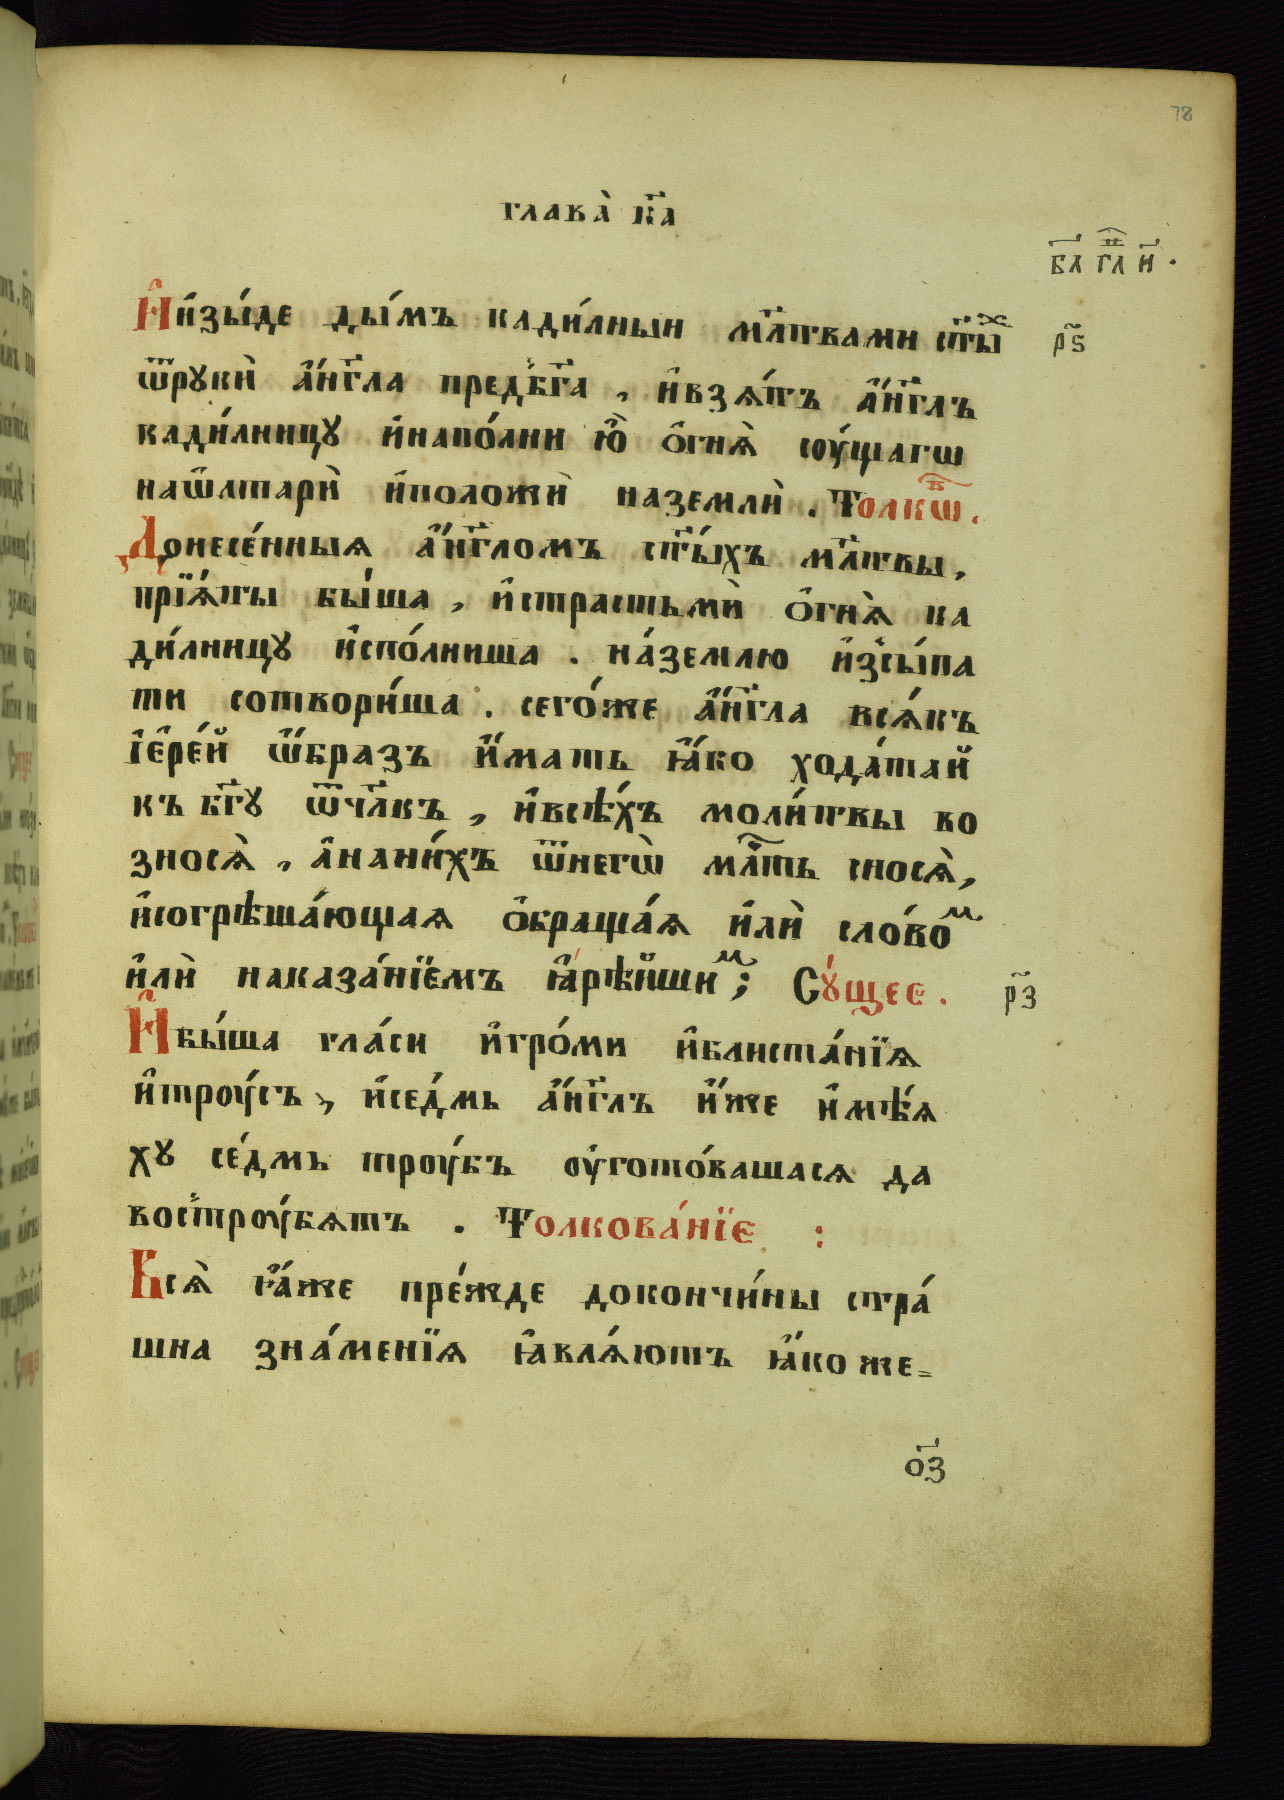 78
глава̀ к҃а
б҃л гл҃ и҃ .
И҆и҆зы́де ды́мъ кади́лныи мл҃твами ст҃ыⷯ
р҃ѕ
ѿрꙋкѝ а҆́нг҃ла предъбг҃а , и҆взѧ́тъ а҆́нг҃лъ
кади́лницꙋ и҆напо́лни ю҆̀ о҆гнѧ̀ соу́щагѡ
наѡ҆лтарѝ и҆положѝ наземлѝ . Толкоⷡ҇ .
Донесе́нныѧ а҆́нг҃ломъ ст҃ы́хъ мл҃твы ,
прїѧ́ты бы́ша , и҆страстьмѝ о҆гнѧ̀ ка
ди́лницꙋ и҆спо́лниша . на́землю и҆зсы́па
ти сотвори́ша . сего́же а҆́нг҃ла всѧ́къ
і҆ере́й ѡ҆́бразъ и҆́мать ꙗ҆́ко хода́тай
къ бг҃ꙋ ѿчл҃къ , и҆всѣ́хъ моли́твы во
зносѧ̀ , а҆нани́хъ ѿнегѡ̀ мл҃ть сносѧ̀ ,
и҆согрѣша́ющаѧ о҆браща́ѧ и҆лѝ сло́воⷨ
и҆лѝ наказа́нїемъ ꙗ҆рѣ́йшиⷨ ; Сꙋ́щее .
р҃з
И҆бы́ша гла́си и҆гро́ми и҆блиста́нїѧ
и҆троу́съ , и҆се́дмь а҆́нг҃лъ и҆́же и҆мѣ́ѧ
хꙋ се́дмь троу́бъ оу҆гото́вашасѧ да
востроу́бѧтъ . Толкова́нїе :
Всѧ̀ ꙗ҆́же пре́жде докончи́ны стра́
шна зна́менїѧ ꙗ҆влѧ́ютъ ꙗ҆́коже=
о҃з